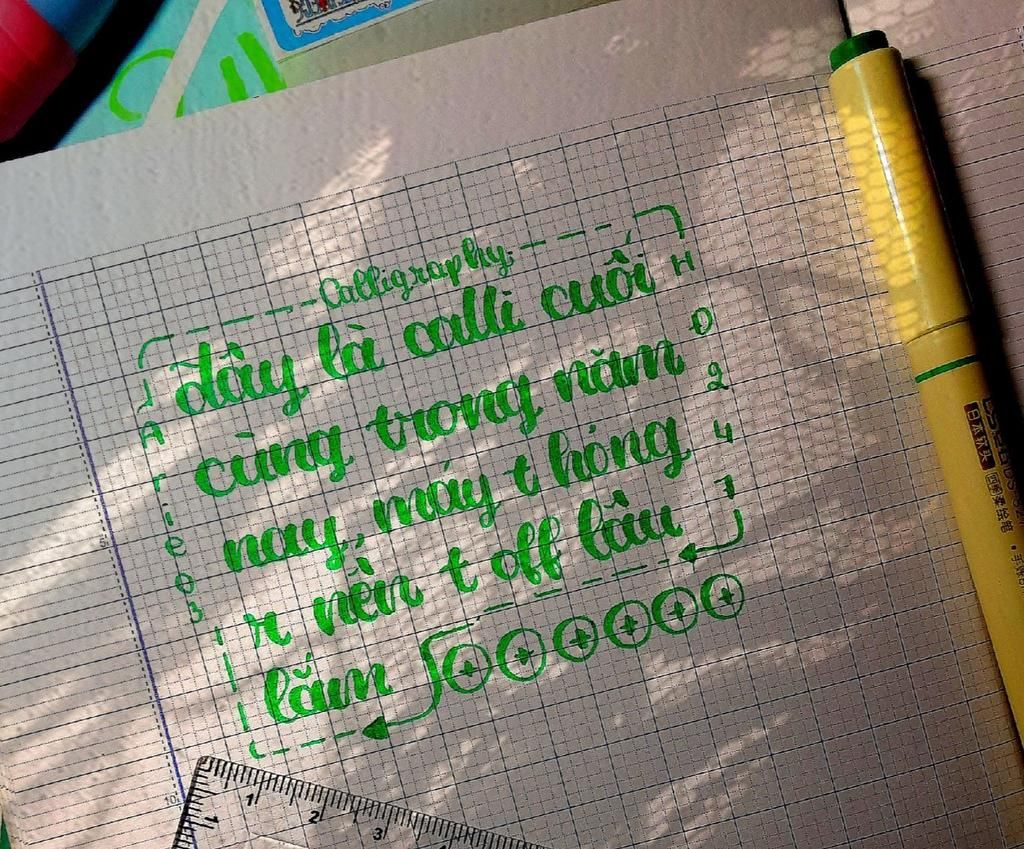 Calligraphy:
đây là calli cuối
cùng trong năm
nay, máy t hỏng
r nên t off lâu
lắm
H
D
2
4
7
A
r
i
e
0
3
日本软头
5
10
1
2
3
1